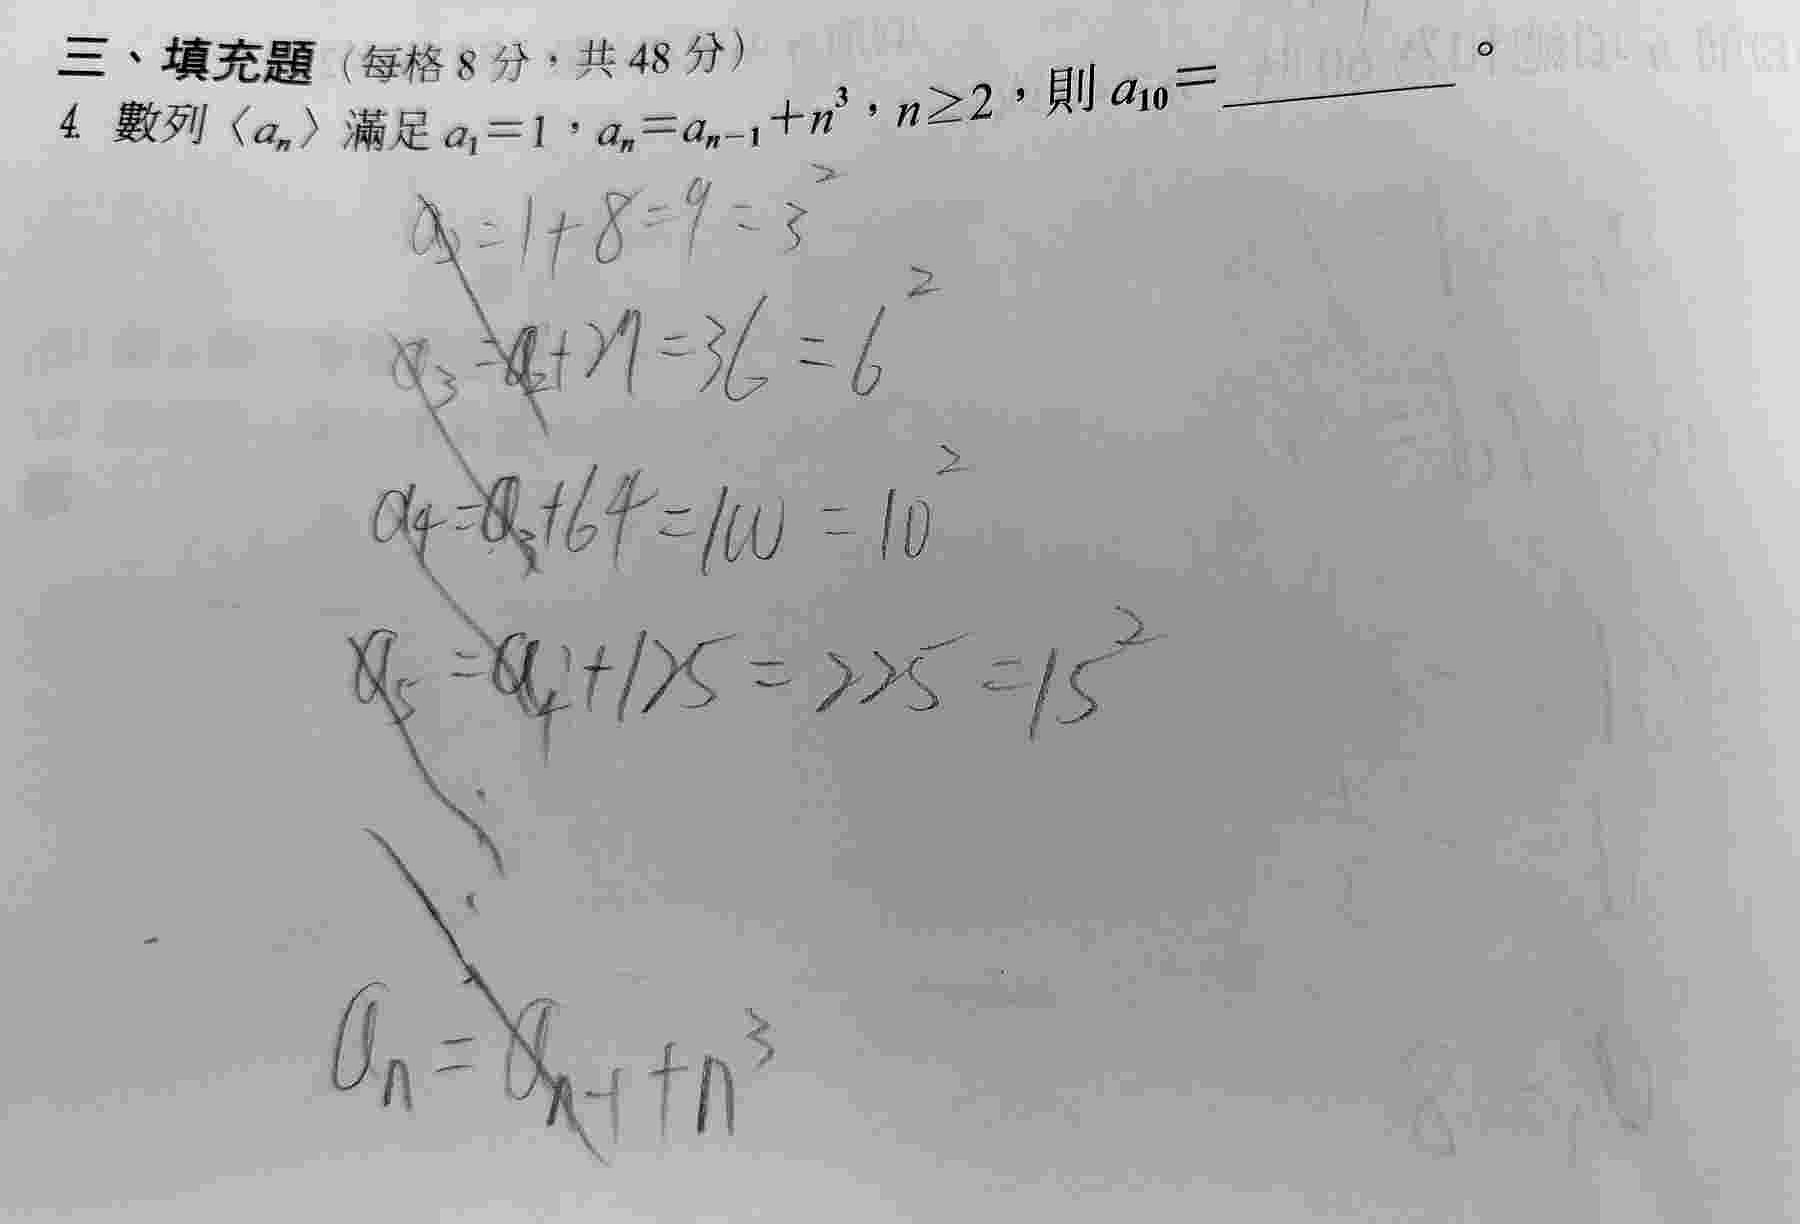 三、填充題（每格 8 分，共 48 分）
4. 數列〈aₙ〉滿足 a₁＝1，aₙ＝aₙ₋₁＋n³，n≥2，則 a₁₀＝______。
a₂=1+8=9=3²
a₃=a₂+27=36=6²
a₄=a₃+64=100=10²
a₅=a₄+125=225=15²
aₙ=aₙ₋₁+n³